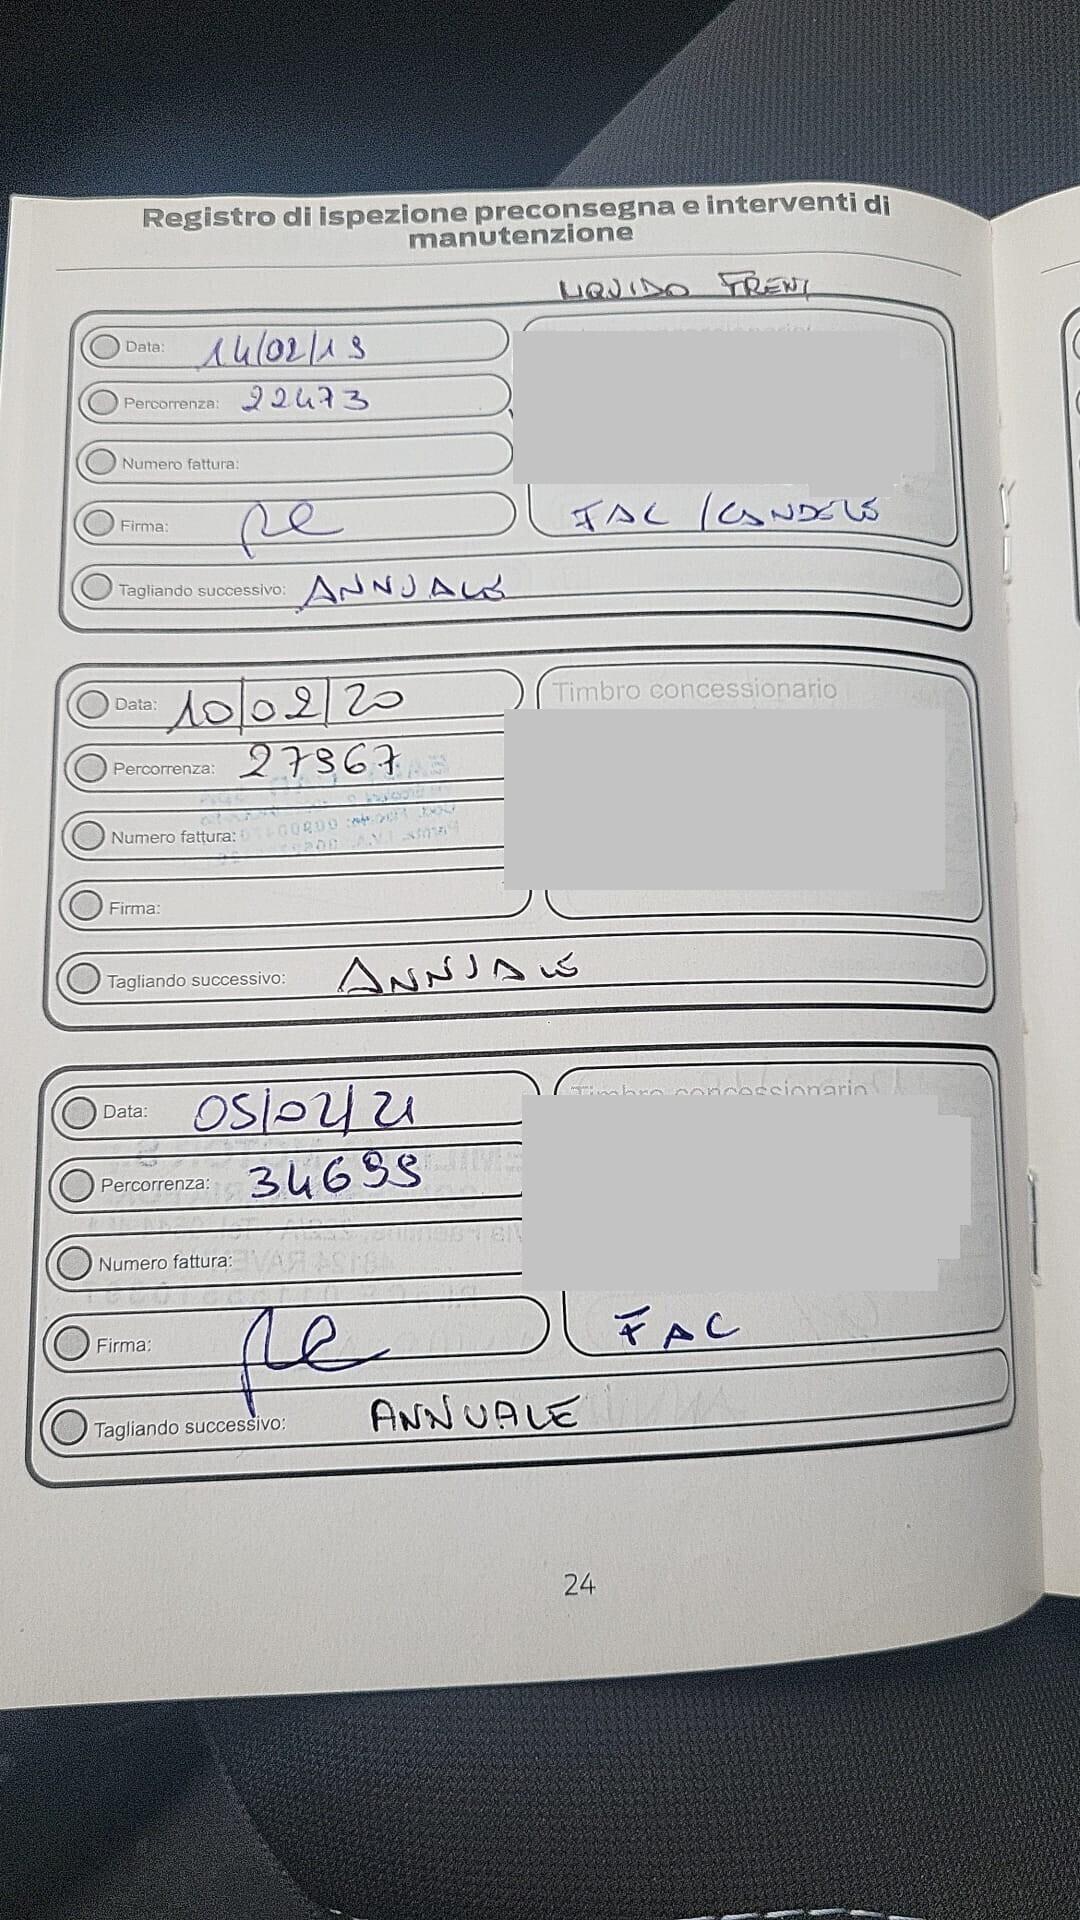 Registro di ispezione preconsegna e interventi di
manutenzione
LIQUIDO FRENI
Data: 14/02/19
Percorrenza: 22473
Numero fattura:
Firma:
FAC / CANDELE
Tagliando successivo: ANNUALE
Data: 10/02/20
Timbro concessionario
Percorrenza: 27967
Numero fattura:
Firma:
Tagliando successivo: ANNUALE
Data: 05/02/21
Timbro concessionario
Percorrenza: 34699
Numero fattura:
Firma:
FAC
Tagliando successivo: ANNUALE
24